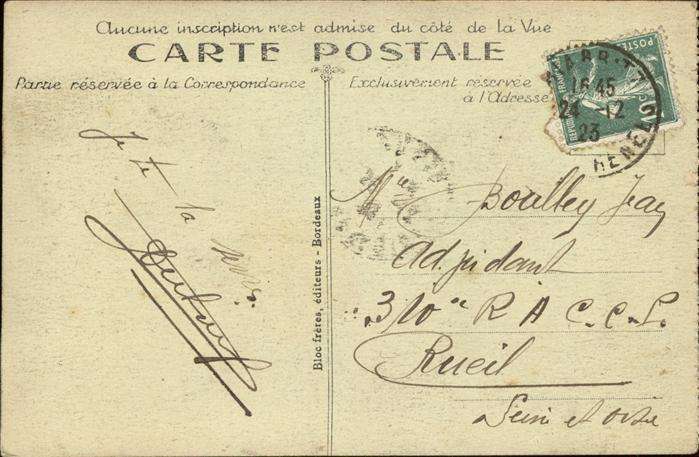 Aucune inscription n'est admise du côté de la Vue
CARTE POSTALE
Partie réservée à la Correspondance
Exclusivement réservée
à l'Adresse
Je te la
Bloc frères, éditeurs - Bordeaux
POSTES
BIARRITZ
16 45
24 - 12
23
M Boulley Jean
Adjudant
310e R A C.C.L.
Rueil
Seine et Oise